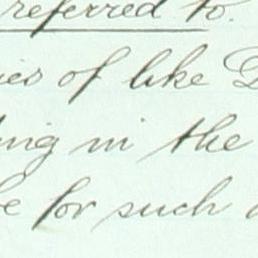 referred to.
of like
in the
for such